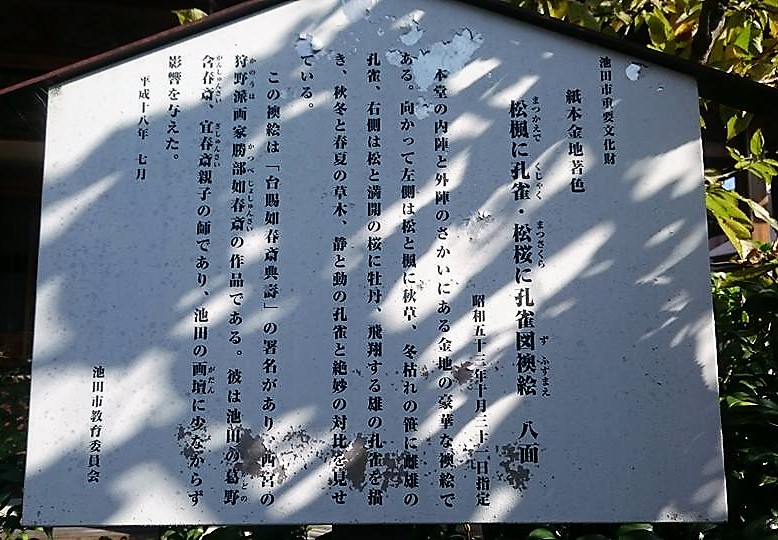 池田市重要文化財
紙本金地著色
松楓に孔雀・松桜に孔雀図襖絵 八面
まつかえで くじゃく まつさくら ず ふすまえ
昭和五十三年十月三十一日指定
本堂の内陣と外陣のさかいにある金地の豪華な襖絵で
ある。向かって左側は松と楓に秋草、冬枯れの笹に雌雄の
孔雀、右側は松と満開の桜に牡丹、飛翔する雄の孔雀を描
き、秋冬と春夏の草木、静と動の孔雀と絶妙の対比を見せ
ている。
この襖絵は「台賜如春斎典壽」の署名があり、西宮の
狩野派画家勝部如春斎の作品である。彼は池田の葛野
かのうは かつべじょしゅんさい かどの
含春斎、宜春斎親子の師であり、池田の画壇に少なからず
がんしゅんさい ぎしゅんさい がだん
影響を与えた。
平成十八年 七月
池田市教育委員会